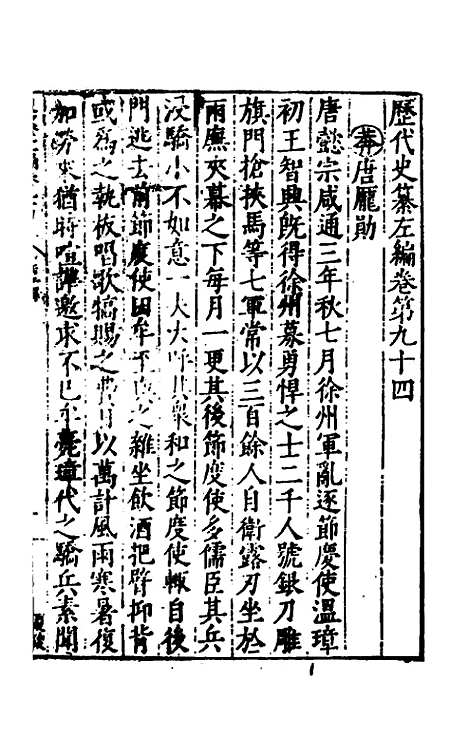 歷代史纂左編卷第九十四
唐龐勛
唐懿宗咸通三年秋七月徐州軍亂逐節度使溫璋
初王智興既得徐州募勇悍之士二千人號銀刀雕
旗門槍挾馬等七軍常以三百餘人自衛露刃坐於
兩廡夾幕之下每月一更其後節度使多儒臣其兵
浸驕小不如意一夫大呼其眾和之節度使輒自後
門逃去前節度使田牟至與之雜坐飲酒把臂拊背
或為之執板唱歌犒賜之費日以萬計風雨寒暑復
加勞來猶時喧譁邀求不已牟薨璋代之驕兵素聞